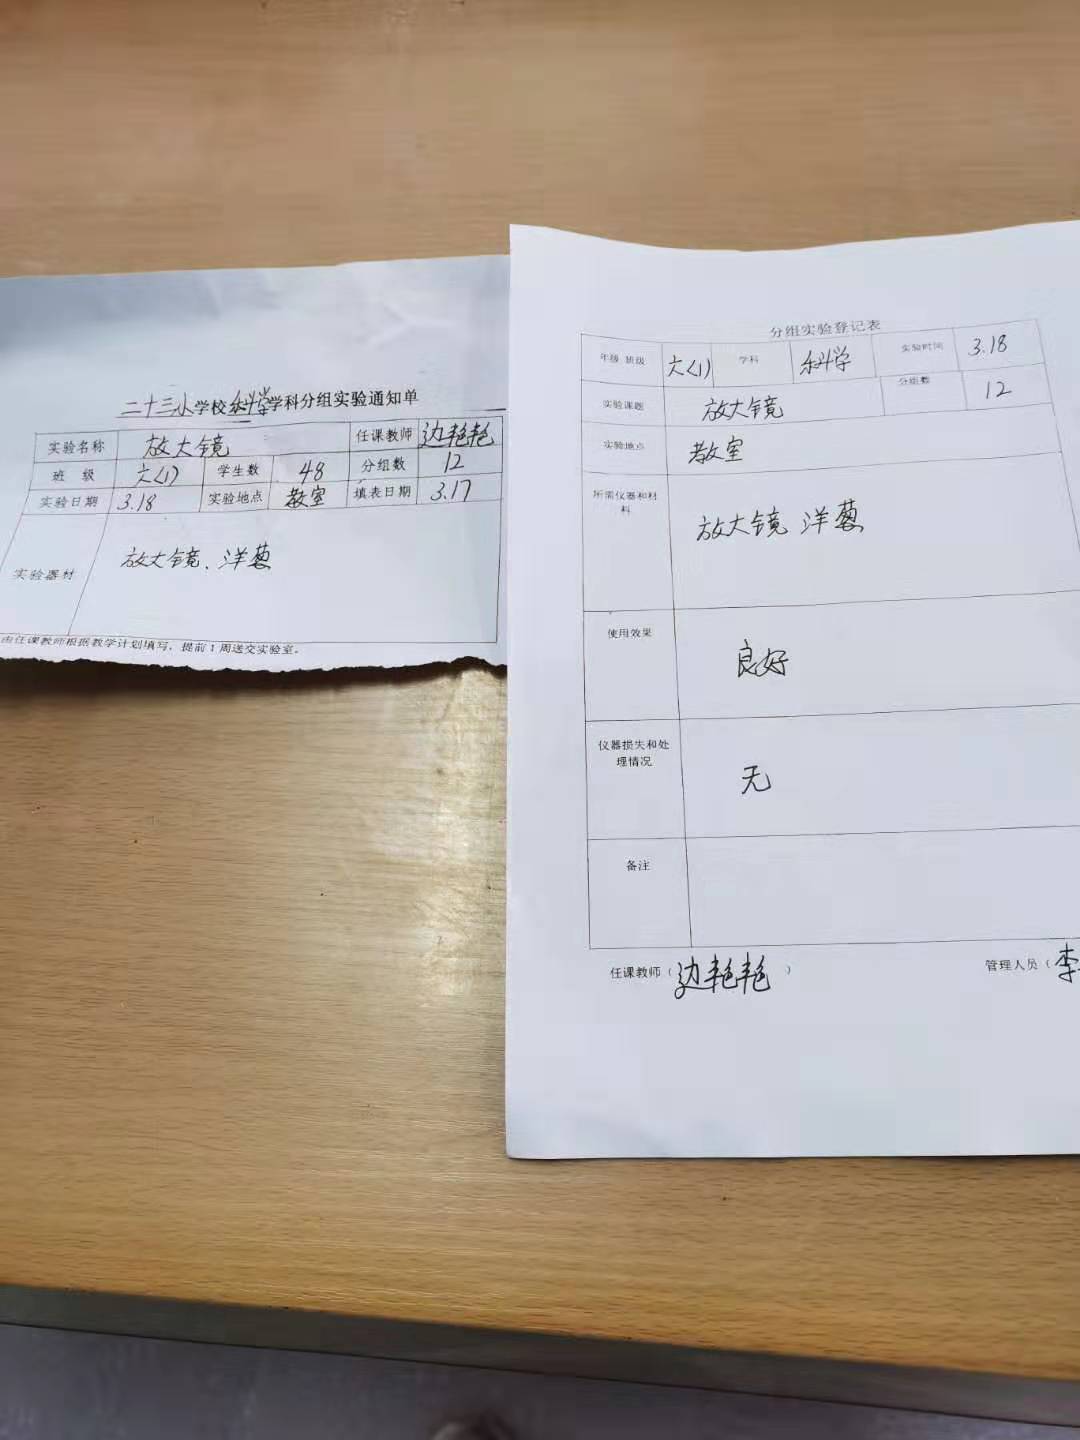 二十三小学校科学学科分组实验通知单
实验名称 放大镜 任课教师 边艳艳
班 级 六(1) 学生数 48 分组数 12
实验日期 3.18 实验地点 教室 填表日期 3.17
实验器材 放大镜、洋葱
由任课教师根据教学计划填写，提前1周送交实验室。
分组实验登记表
年级 班级 六(1) 学科 科学 实验时间 3.18
实验课题 放大镜 分组数 12
实验地点 教室
所需仪器和材
料
放大镜 洋葱
使用效果 良好
仪器损失和处
理情况
无
备注
任课教师（边艳艳） 管理人员（李